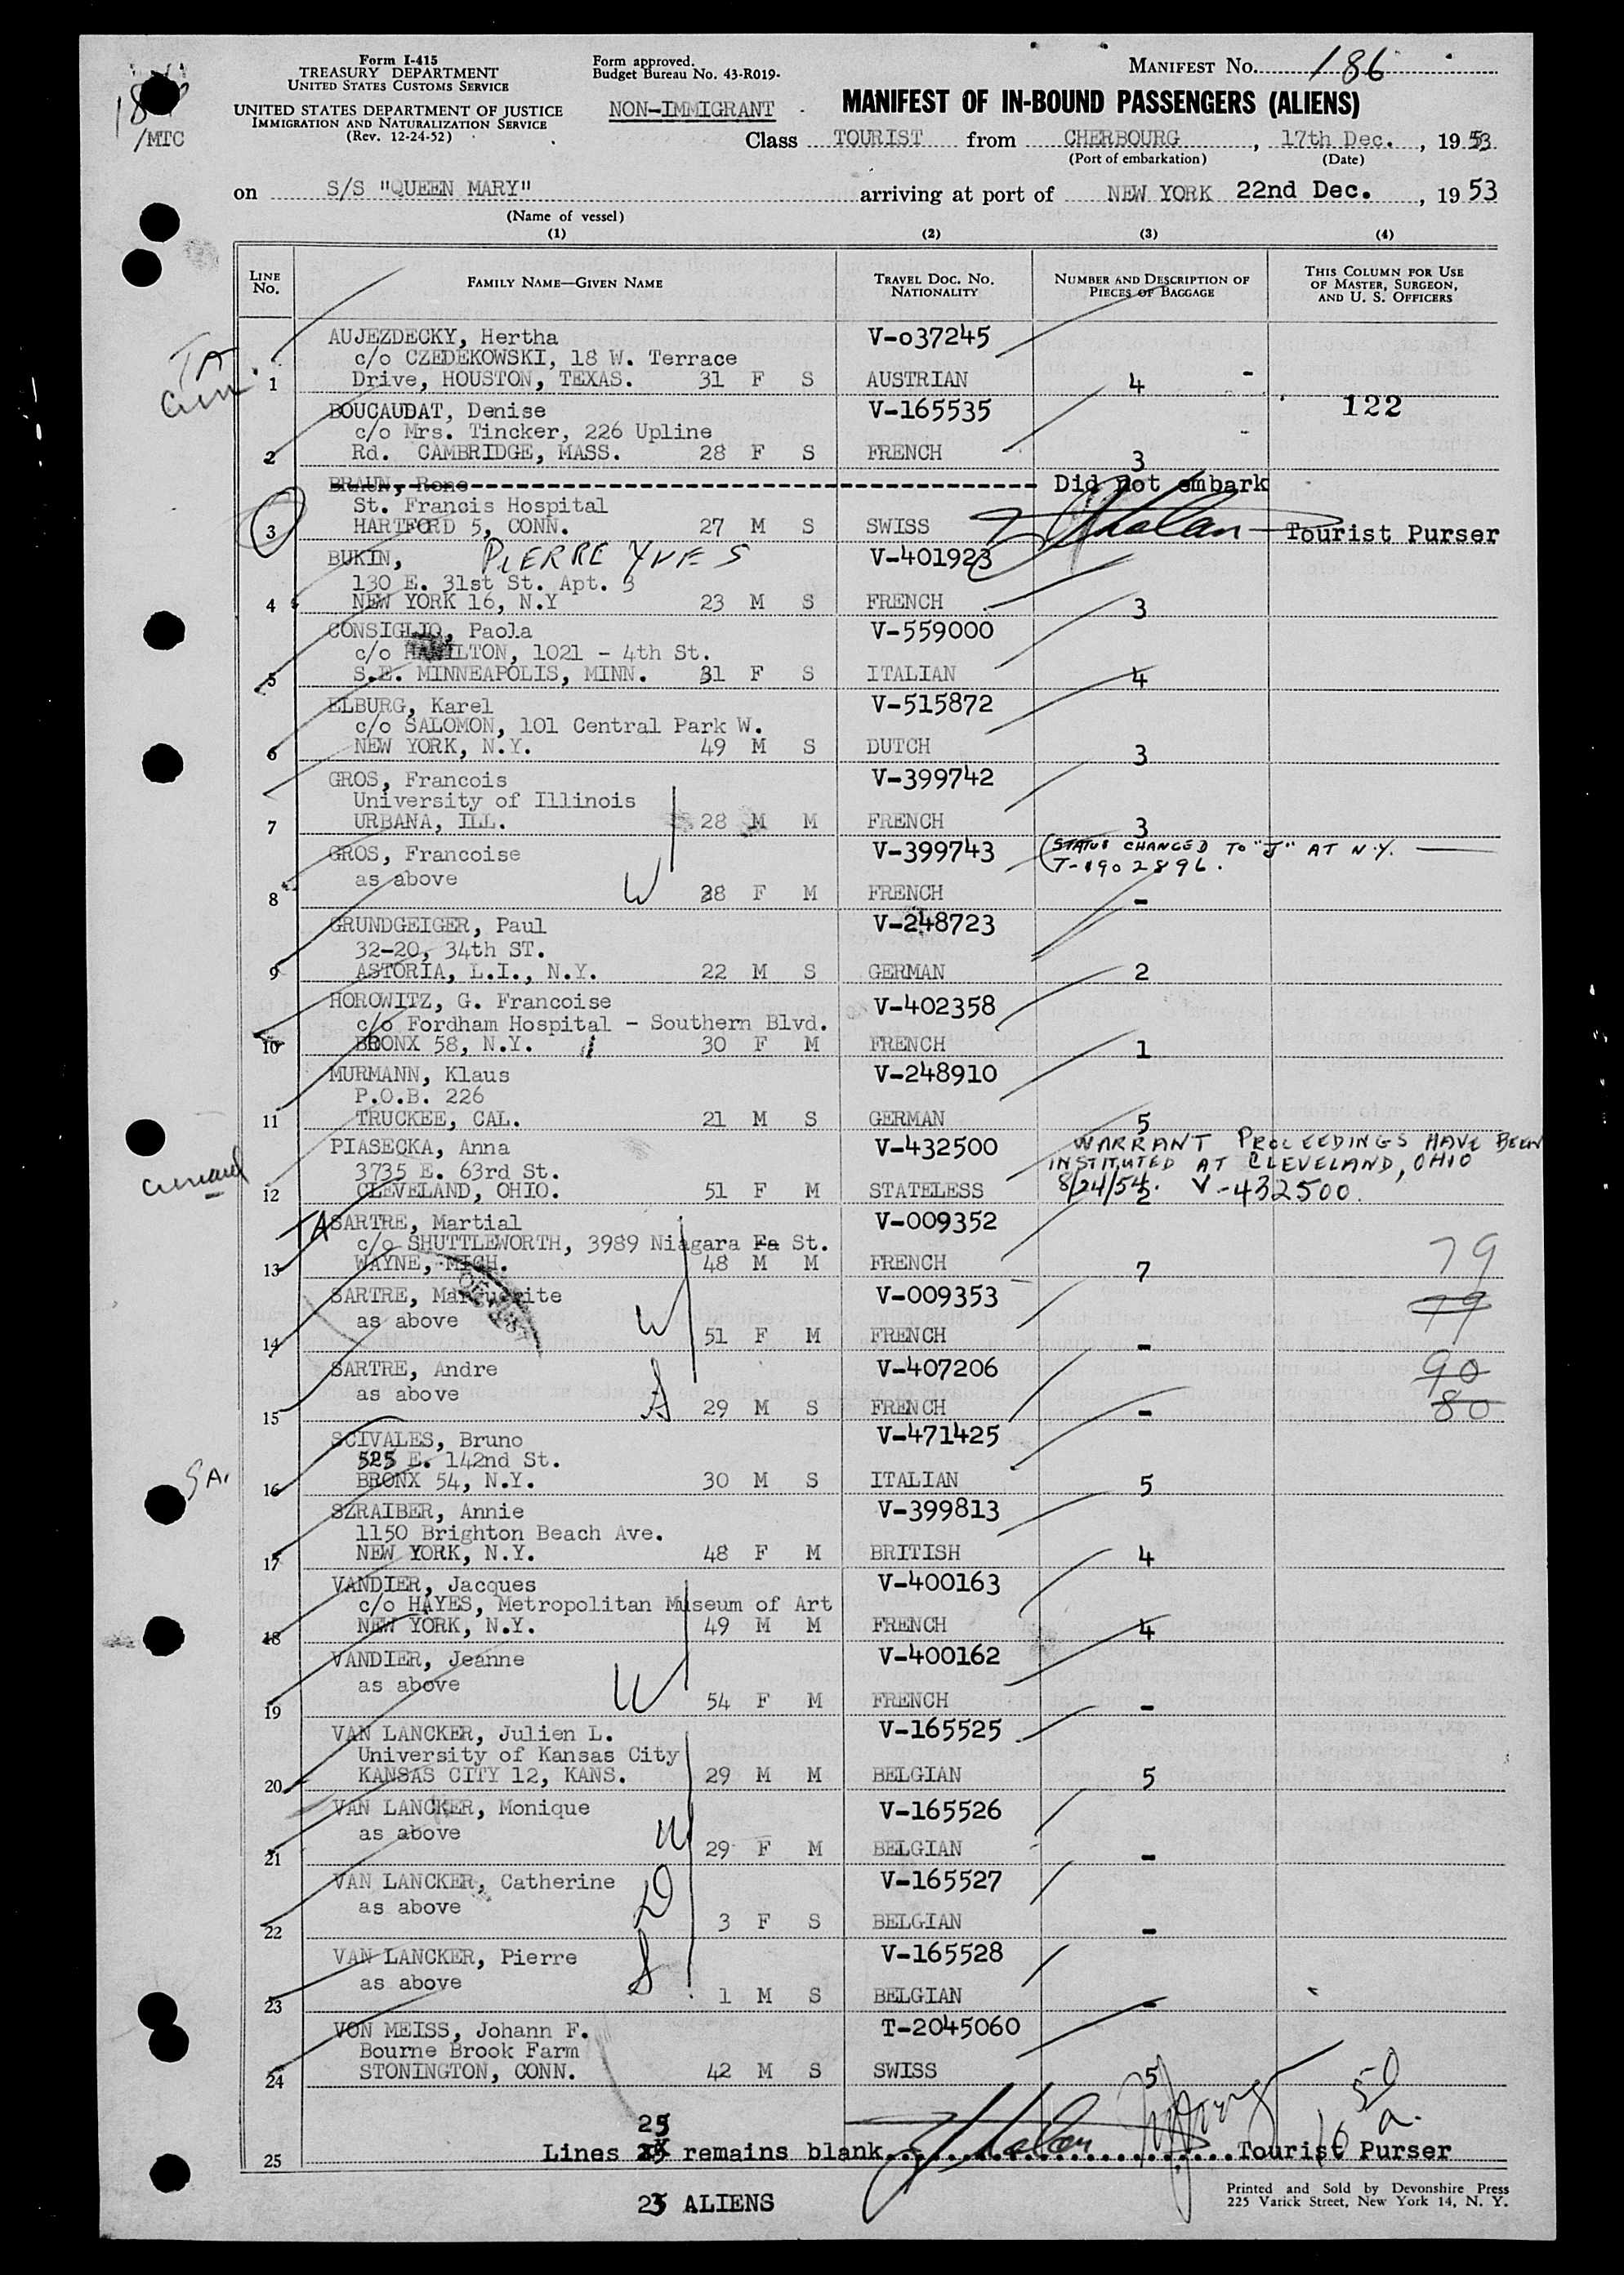 Form I-415
TREASURY DEPARTMENT
UNITED STATES CUSTOMS SERVICE
UNITED STATES DEPARTMENT OF JUSTICE
IMMIGRATION AND NATURALIZATION SERVICE
(Rev. 12-24-52)
/MTC
Form approved.
Budget Bureau No. 43-R019-
NON-IMMIGRANT
MANIFEST NO. 186
MANIFEST OF IN-BOUND PASSENGERS (ALIENS)
Class TOURIST from CHERBOURG, 17th Dec., 1953
(Port of embarkation) (Date)
on S/S "QUEEN MARY" arriving at port of NEW YORK 22nd Dec., 1953
(Name of vessel)
(1) (2) (3) (4)
LINE NO. FAMILY NAME—GIVEN NAME TRAVEL DOC. NO. NATIONALITY NUMBER AND DESCRIPTION OF PIECES OF BAGGAGE THIS COLUMN FOR USE OF MASTER, SURGEON, AND U. S. OFFICERS
AUJEZDECKY, Hertha V-o37245
c/o CZEDEKOWSKI, 18 W. Terrace
1 Drive, HOUSTON, TEXAS. 31 F S AUSTRIAN 4 -
BOUCAUDAT, Denise V-165535 122
c/o Mrs. Tincker, 226 Upline
2 Rd. CAMBRIDGE, MASS. 28 F S FRENCH 3
BRAUN, Rene Did not embark
St. Francis Hospital
3 HARTFORD 5, CONN. 27 M S SWISS Tourist Purser
BUKIN, PIERRE YVES V-401923
130 E. 31st St. Apt. 3
4 NEW YORK 16, N.Y 23 M S FRENCH 3
CONSIGLIO, Paola V-559000
c/o HAMILTON, 1021 - 4th St.
5 S.E. MINNEAPOLIS, MINN. 31 F S ITALIAN 4
ELBURG, Karel V-515872
c/o SALOMON, 101 Central Park W.
6 NEW YORK, N.Y. 49 M S DUTCH 3
GROS, Francois V-399742
University of Illinois
7 URBANA, ILL. 28 M M FRENCH 3
GROS, Francoise V-399743 (STATUS CHANGED TO "J" AT N.Y.
as above T-1902896.
8 W 28 F M FRENCH -
GRUNDGEIGER, Paul V-248723
32-20, 34th ST.
9 ASTORIA, L.I., N.Y. 22 M S GERMAN 2
HOROWITZ, G. Francoise V-402358
c/o Fordham Hospital - Southern Blvd.
10 BRONX 58, N.Y. 30 F M FRENCH 1
MURMANN, Klaus V-248910
P.O.B. 226
11 TRUCKEE, CAL. 21 M S GERMAN 5
PIASECKA, Anna V-432500 WARRANT PROCEEDINGS HAVE BEEN
3735 E. 63rd St. INSTITUTED AT CLEVELAND, OHIO
12 CLEVELAND, OHIO. 51 F M STATELESS 2 8/24/54. V-432500.
TA SARTRE, Martial V-009352
c/o SHUTTLEWORTH, 3989 Niagara Fa St.
13 WAYNE, MICH. 48 M M FRENCH 7 79
SARTRE, Marguerite V-009353 79
as above W
14 51 F M FRENCH -
SARTRE, Andre V-407206 90
as above
15 29 M S FRENCH - 80
SCIVALES, Bruno V-471425
525 E. 142nd St.
16 BRONX 54, N.Y. 30 M S ITALIAN 5
SZRAIBER, Annie V-399813
1150 Brighton Beach Ave.
17 NEW YORK, N.Y. 48 F M BRITISH 4
VANDIER, Jacques V-400163
c/o HAYES, Metropolitan Museum of Art
18 NEW YORK, N.Y. 49 M M FRENCH 4
VANDIER, Jeanne V-400162
as above W
19 54 F M FRENCH -
VAN LANCKER, Julien L. V-165525
University of Kansas City
20 KANSAS CITY 12, KANS. 29 M M BELGIAN 5
VAN LANCKER, Monique V-165526
as above W
21 29 F M BELGIAN -
VAN LANCKER, Catherine V-165527
as above D
22 3 F S BELGIAN -
VAN LANCKER, Pierre V-165528
as above S
23 1 M S BELGIAN -
VON MEISS, Johann F. T-2045060
Bourne Brook Farm
24 STONINGTON, CONN. 42 M S SWISS 5
25
25 Lines remains blank Tourist Purser
23 ALIENS
Printed and Sold by Devonshire Press
225 Varick Street, New York 14, N. Y.